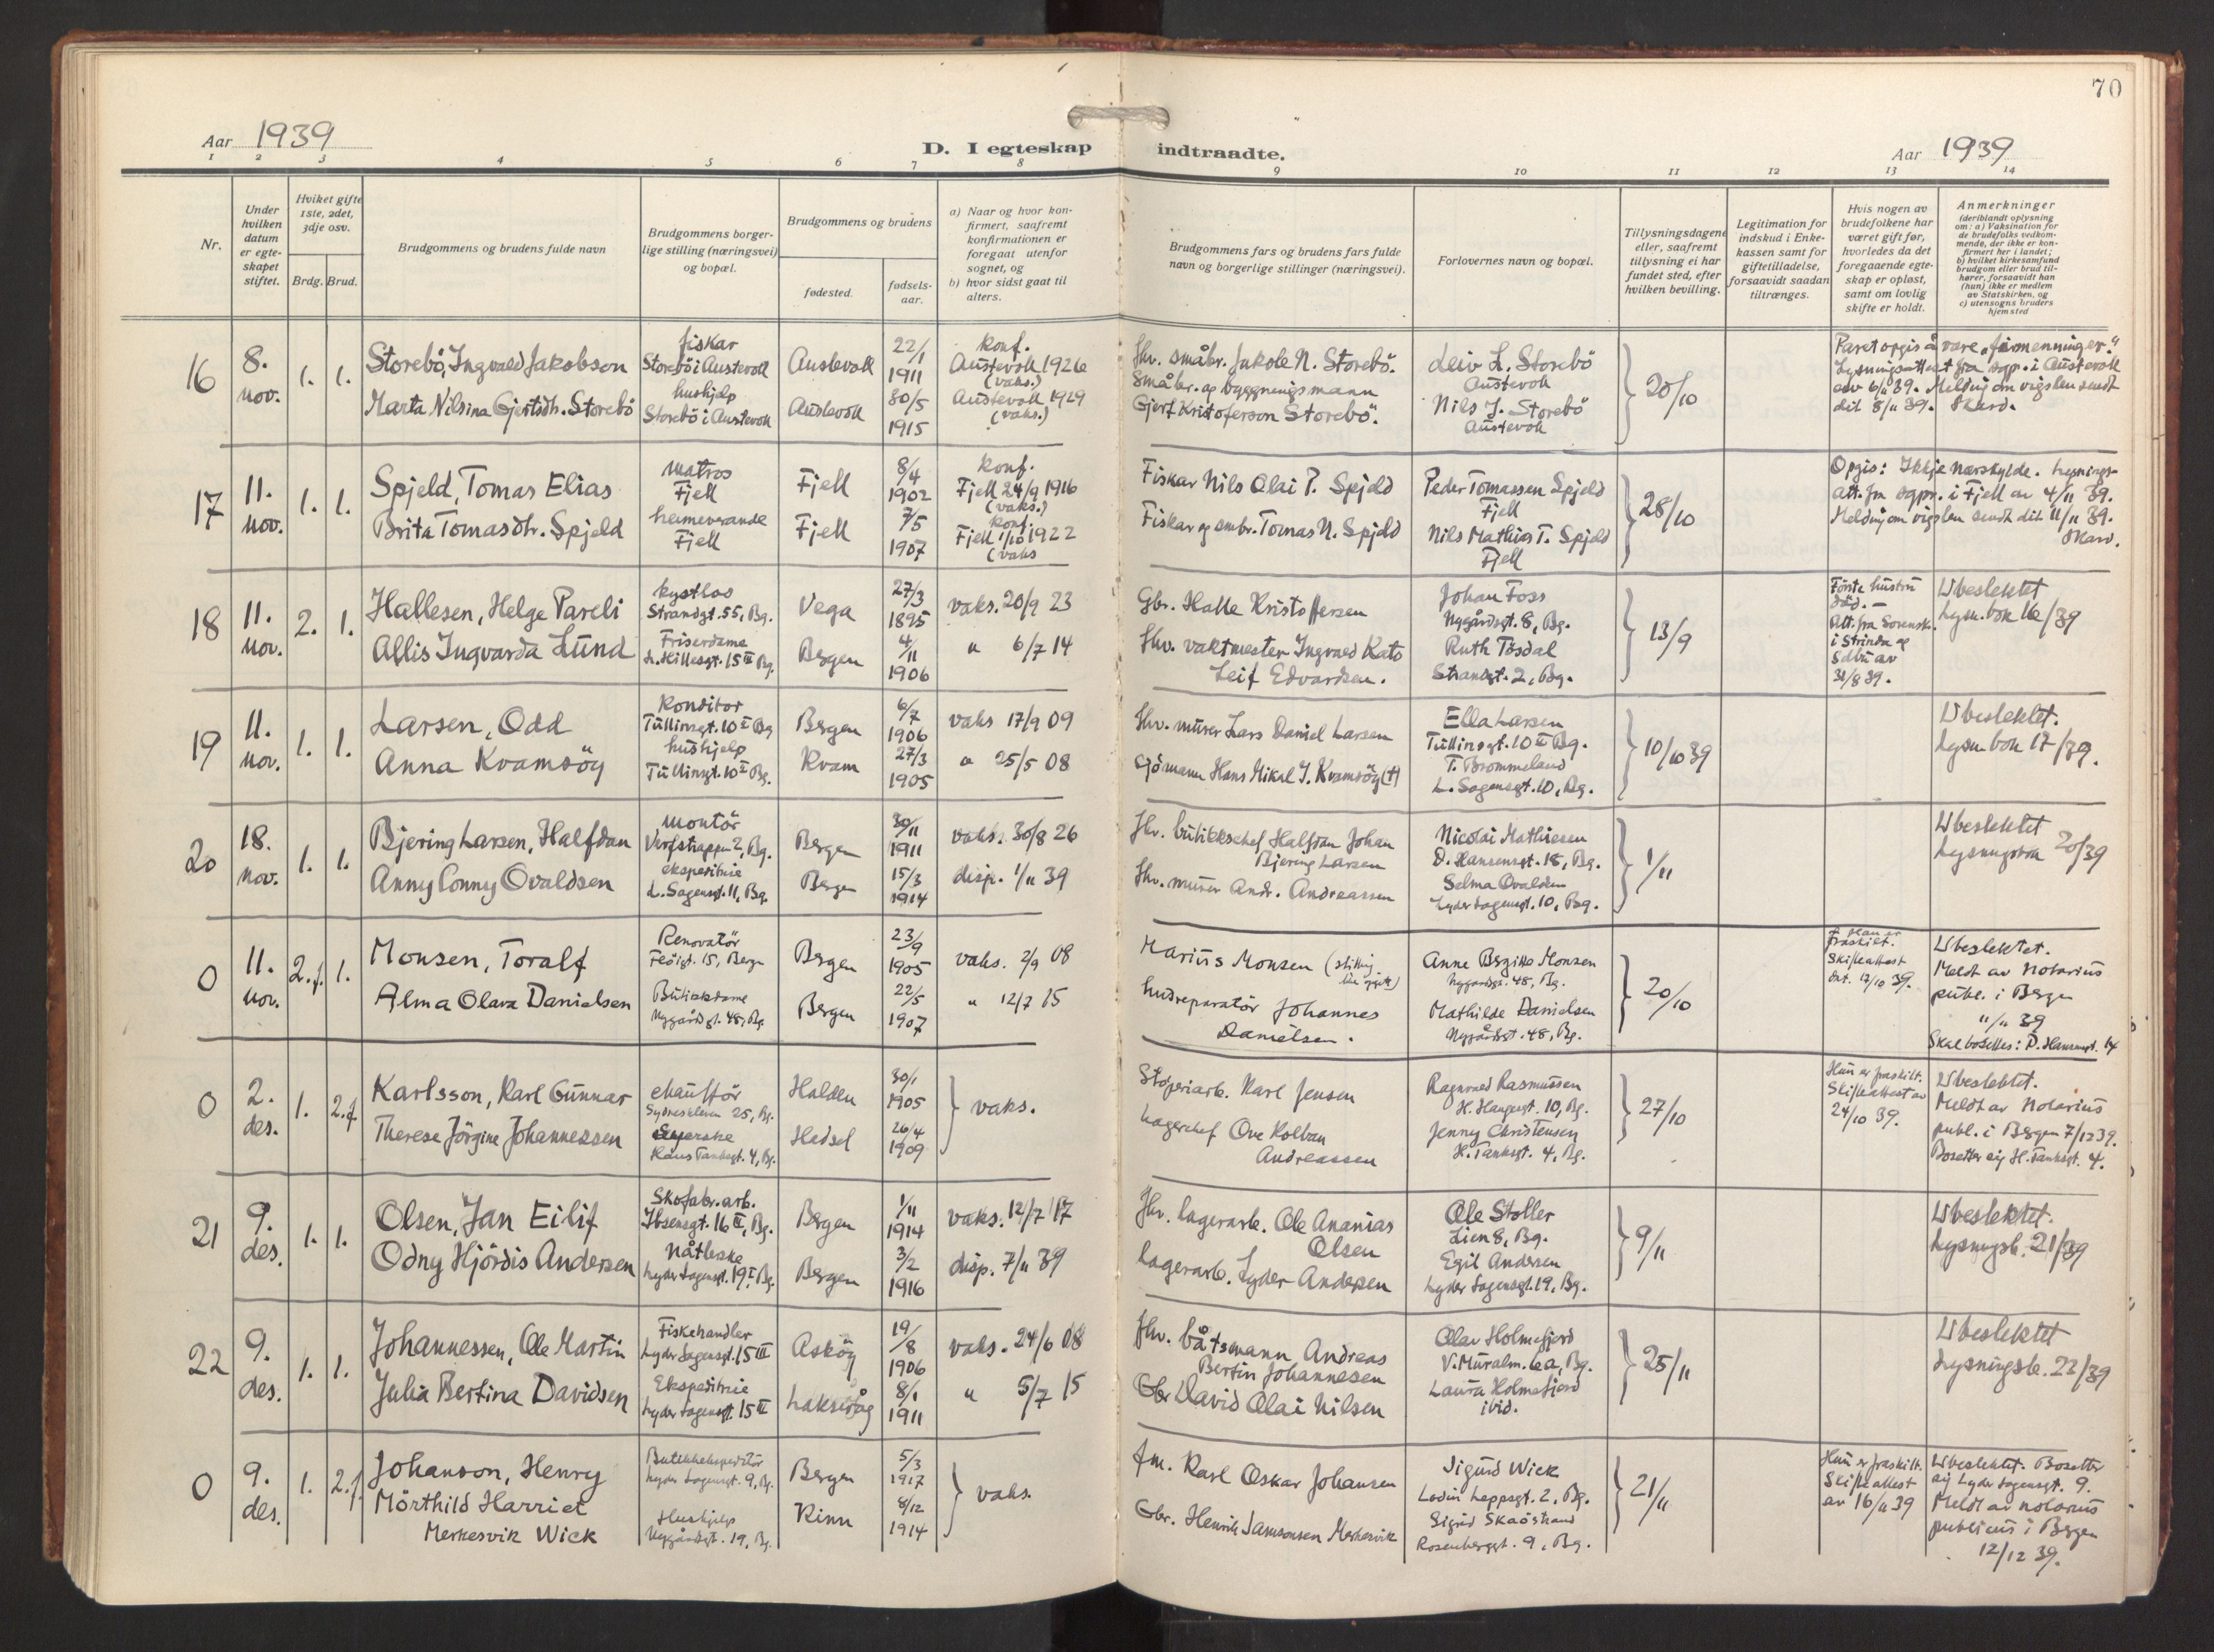 70
Aar 1939
D. I egteskap indtraadte.
Aar 1939
1 2 3 4 5 6 7 8 9 10 11 12 13 14
Nr.
Under hvilken datum er egteskapet stiftet.
Hviket gifte 1ste, 2det, 3dje osv.
Brdg. Brud.
Brudgommens og brudens fulde navn
Brudgommens borgerlige stilling (næringsvei) og bopæl.
Brudgommens og brudens
fødested.
fødsels-aar.
a) Naar og hvor konfirmert, saafremt konfirmationen er foregaat utenfor sognet, og
b) hvor sidst gaat til alters.
Brudgommens fars og brudens fars fulde navn og borgerlige stillinger (næringsvei).
Forlovernes navn og bopæl.
Tillysningsdagene eller, saafremt tillysning ei har fundet sted, efter hvilken bevilling.
Legitimation for indskud i Enkekassen samt for giftetilladelse, forsaavidt saadan tiltrænges.
Hvis nogen av brudefolkene har været gift før, hvorledes da det foregaaende egteskap er opløst, samt om lovlig skifte er holdt.
Anmerkninger
(deriblandt oplysning om: a) Vaksination for de brudefolks vedkommende, der ikke er konfirmert her i landet; b) hvilket kirkesamfund brudgom eller brud tilhører, forsaavidt han (hun) ikke er medlem av Statskirken, og c) utensogns bruders hjemsted
16 8. nov. 1. 1.
Storebö, Ingvald Jakobson
fiskar Storebö i Austevoll
Austevoll
22/1 1911
konf. Austevoll 1926 (vaks.)
Marta Nilsina Gjertsdtr. Storebö
hushjelp Storebö i Austevoll
Austevoll
30/5 1915
Austevoll 1929 (vaks.)
fhv. småbr. Jakob N. Storebö.
Småbr. og byggningsmann Gjert Kristoferson Storebö.
Leiv L. Storebö Austevoll
Nils J. Storebö Austevoll
20/10
Paret opgis å vare "firmenninger."
Lysningsattest fra sogpr. i Austevoll
av 6/11 39. Melding om vigslen sendt
dit 8/11 39. Skard.
17 11. nov. 1. 1.
Spjeld, Tomas Elias
matros Fjell
Fjell
8/4 1902
konf. Fjell 24/9 1916 (vaks.)
Brita Tomasdtr. Spjeld
heimeverande Fjell
Fjell
7/5 1907
konf. Fjell 1/10 1922 (vaks
Fiskar Nils Olai P. Spjeld
Fiskar og smbr. Tomas N. Spjeld
Peder Tomassen Spjeld Fjell
Nils Mathias T. Spjeld Fjell
28/10
Opgis: Ikkje nærskylde. Lysnings-
att. fra sogpr. i Fjell av 4/11 39.
Melding om vigslen sendt dit 11/11 39.
Skard.
18 11. nov. 2. 1.
Hallesen, Helge Pareli
kystlos Strandgt. 55, Bg.
Vega
27/3 1895
vaks. 20/9 23
Allis Ingvarda Lund
Friserdame L. Hillesgt. 15 III Bg.
Bergen
4/11 1906
" 6/7 14
Gbr. Halle Kristoffersen
fhv. vaktmester Ingvald Kato Leif Edvardsen.
Johan Foss Nygårdsgt. 8, Bg.
Ruth Tösdal Strandgt. 2, Bg.
13/9
Förste hustru död. –
Att. fra Sorenskr. i Strinda og Selbu av 31/8 39.
Ubeslektet
Lysn. bok 16/39
19 11. nov. 1. 1.
Larsen, Odd
Konditor Tullinsgt. 10 II Bg
Bergen
6/7 1906
vaks 17/9 09
Anna Kvamsöy
hushjelp Tullinsgt. 10 II Bg.
Kvam
27/3 1905
" 25/5 08
fhv. murer Lars Daniel Larsen
Gårmann Hans Mikal J. Kvamsöy (†)
Ella Larsen Tullinsgt. 10 II Bg.
T. Brommeland L. Sagensgt. 10, Bg.
10/10 39
Ubeslektet.
Lysn. bok 17/39.
20 18. nov. 1. 1.
Bjering Larsen, Halfdan
montör Verftstrappen 2, Bg.
Bergen
30/11 1911
vaks. 30/8 26
Anny Conny Ovaldsen
ekspeditrise L. Sagensgt. 11, Bg.
Bergen
15/3 1914
disp. 1/11 39
fhv. butikkschef Halfdan Johan Bjering Larsen
fhv. murer Andr. Andreassen
Nicolai Mathiesen D. Hansensgt. 18, Bg.
Selma Ovaldsen Lyder Sagensgt. 10, Bg.
1/11
Ubeslektet
Lysningsbok 20/39
0 11. nov. 2.f 1.
Monsen, Toralf
Renovatör Fesigt. 15, Bergen
Bergen
23/9 1905
vaks. 2/9 08
Alma Olava Danielsen
Butikkdame Nygårdsgt. 48, Bg.
Bergen
22/5 1907
" 12/7 15
Marius Monsen (stilling ikke opgitt)
hudreparatör Johannes Danielsen.
Anne Bergitte Monsen Nygårdsgt. 48, Bg.
Mathilde Danielsen Nygårdsgt. 48, Bg.
20/10
Han er fraskilt.
Skifteattest dat. 17/10 39.
Ubeslektet.
Meldt av Notarius publ. i Bergen
11/11 39
Skal bosettes: D. Hansensgt. 14
0 2. des. 1. 2.f
Karlsson, Karl Gunnar
chaufför Sydneskleven 25, Bg.
Halden
30/1 1905
Therese Jörgine Johannessen
Syerske Hans Tanksgt. 4, Bg.
Hadsel
26/4 1909
} vaks.
Stöperiarb. Karl Jensen
Lagerchef Ove Kolban Andreassen
Ragnvald Rasmussen H. Haugesgt. 10, Bg.
Jenny Christensen H. Tanksgt. 4, Bg.
27/10
Hun er fraskilt.
Skifteattest av 24/10 39.
Ubeslektet.
Meldt av Notarius publ. i Bergen 7/12 39.
Bosetter sig H. Tanksgt. 4.
21 9. des. 1. 1.
Olsen, Jan Eilif
Skofabr. arb. Ibsensgt. 16 II, Bg.
Bergen
1/11 1914
vaks. 12/7 17
Odny Hjördis Andersen
Nåtleske Lyder Sagensgt. 19 I, Bg.
Bergen
3/2 1916
disp. 7/11 39
fhv. lagerarb. Ole Ananias Olsen
lagerarb. Lyder Andersen
Ole Stoller Lien 8, Bg.
Egil Andersen Lyder Sagensgt. 19, Bg.
9/11
Ubeslektet.
Lysningsb. 21/39
22 9. des. 1. 1.
Johannessen, Ole Martin
Fiskehandler Lyder Sagensgt. 15 III
Asköy
19/8 1906
vaks. 24/6 08
Julia Bertina Davidsen
Ekspeditrise Lyder Sagensgt. 15 III
Laksevåg
8/1 1911
" 5/7 15
fhv. båtsmann Andreas Bertin Johannesen
Gbr David Olai Nilsen
Olav Holmefjord V. Muralm. 6a, Bg.
Laura Holmefjord ibid.
25/11
Ubeslektet
Lysningsb. 22/39
0 9. des. 1. 2.f.
Johanson, Henry
Butikkekspeditör Lyder Sagensgt. 9, Bg.
Bergen
5/3 1917
Mörthild Harriet Merkesvik Wick
Hushjelp Nygårdsgt. 19, Bg.
Kinn
8/12 1914
} vaks.
fm. Karl Oskar Johansen
Gbr. Henrik Samsonsen Merkesvik
Sigurd Wick Lodin Leppsgt. 2, Bg.
Sigrid Skadstrand Rosenbergsgt. 9, Bg.
21/11
Hun er fraskilt.
Skifteattest av 16/11 39
Ubeslektet. Bosetter sig Lyder Sagensgt. 9.
Meldt av notarius publicus i Bergen
12/12 39.